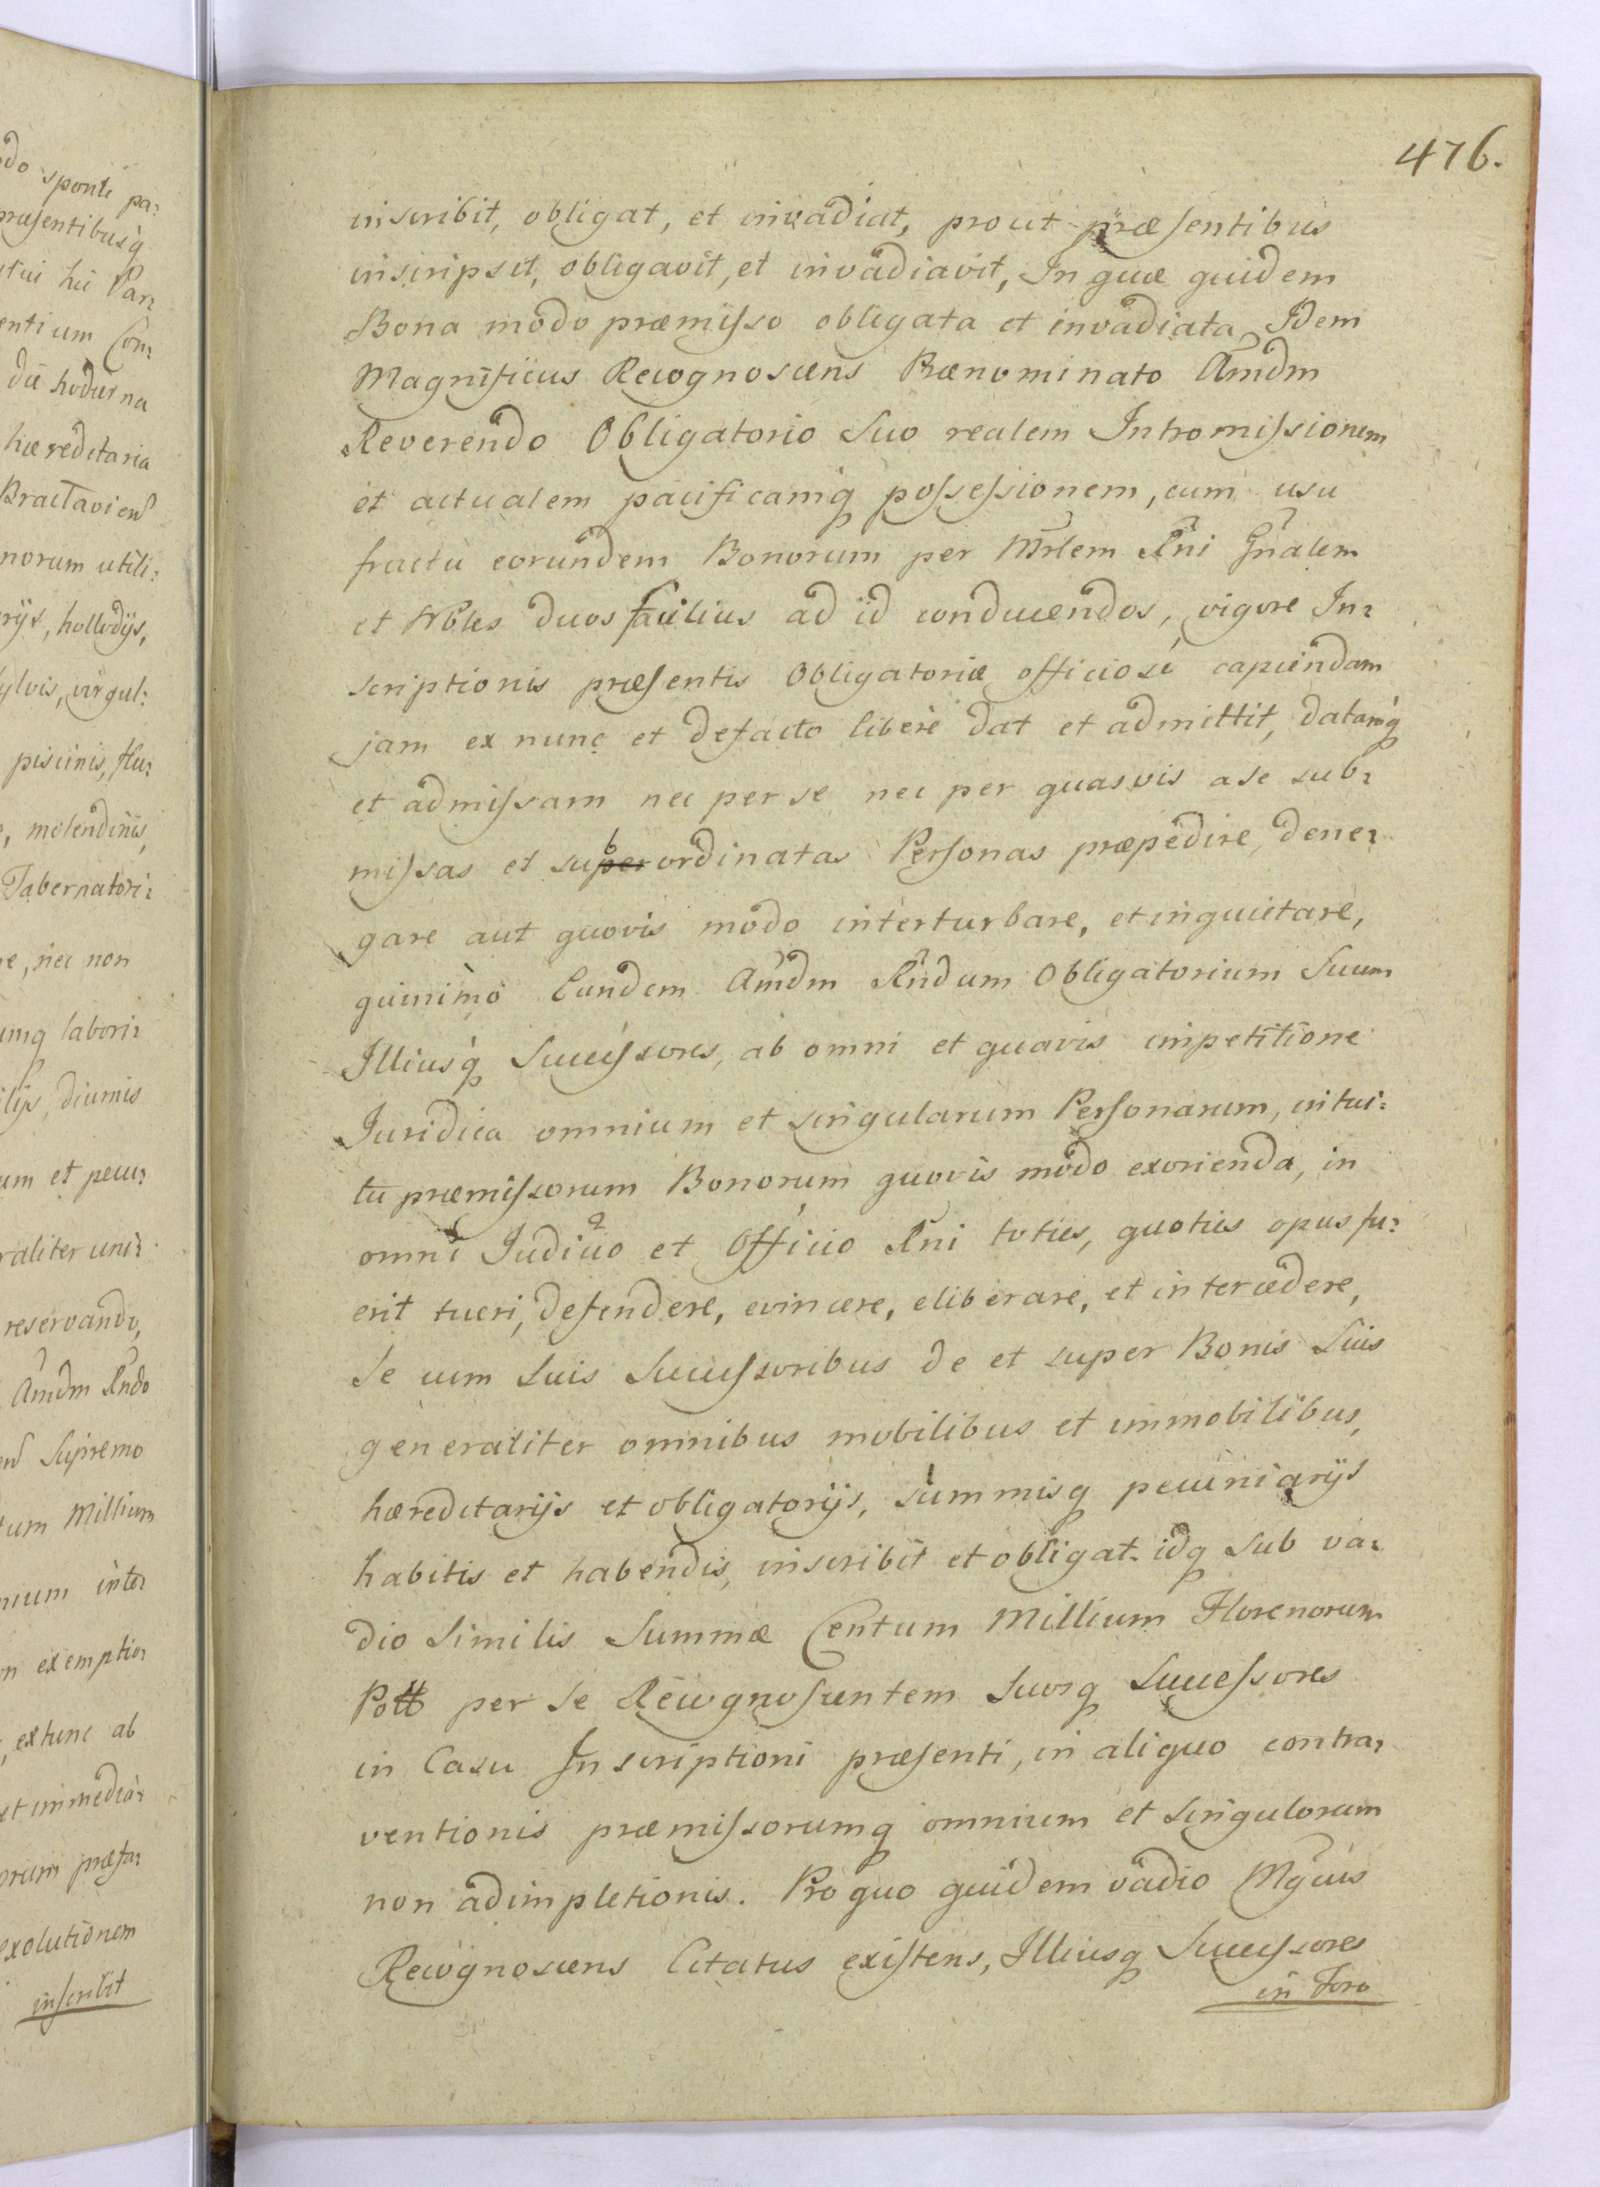 476.
inscribit, obligat, et invadiat, prout præsentibus
inscripsit, obligavit, et invadiavit, In quæ quidem
Bona modo præmisso obligata et invadiata Idem
Magnificus Recognoscens Prænominato Amdm
Reverendo Obligatorio Suo realem Intromissionem
et actualem pacificamq possessionem, cum usu
fructu eorundem Bonorum per Mrlem Rni Gnalem
et Nbles duos facilius ad id conducendos, vigore In:
scriptionis præsentis Obligatoriæ officiose capiendam
jam ex nunc et defacto libere dat et admittit, datamq
et admissam nec per se nec per quasvis a se sub:
missas et subordinatas Personas præpedire, dene:
gare aut quovis modo interturbare, et inquietare,
quinimo Eundem Amdm Rndum Obligatorium Suum
Illiusq Successores, ab omni et quavis impetitione
Juridica omnium et singularum Personarum, intui:
tu præmissorum Bonorum quovis modo exorienda, in
omni Judicio et Officio Rni toties, quoties opus fu:
erit tueri, defendere, evincere, eliberare, et intercedere,
Se cum Suis Successoribus de et super Bonis Suis
generaliter omnibus mobilibus et immobilibus,
hæreditarijs et obligatorijs, summisq pecuniarijs
habitis et habendis, inscribit et obligat. idq sub va:
dio Similis Summæ Centum Millium Florenorum
Poll per Se Recognoscentem Suosq Successores
in Casu Inscriptioni præsenti, in aliquo contra:
ventionis præmissorumq omnium et Singulorum
non adimpletionis. Pro quo quidem vadio Mgcus
Recognoscens Citatus existens, Illiusq Successores
in Foro